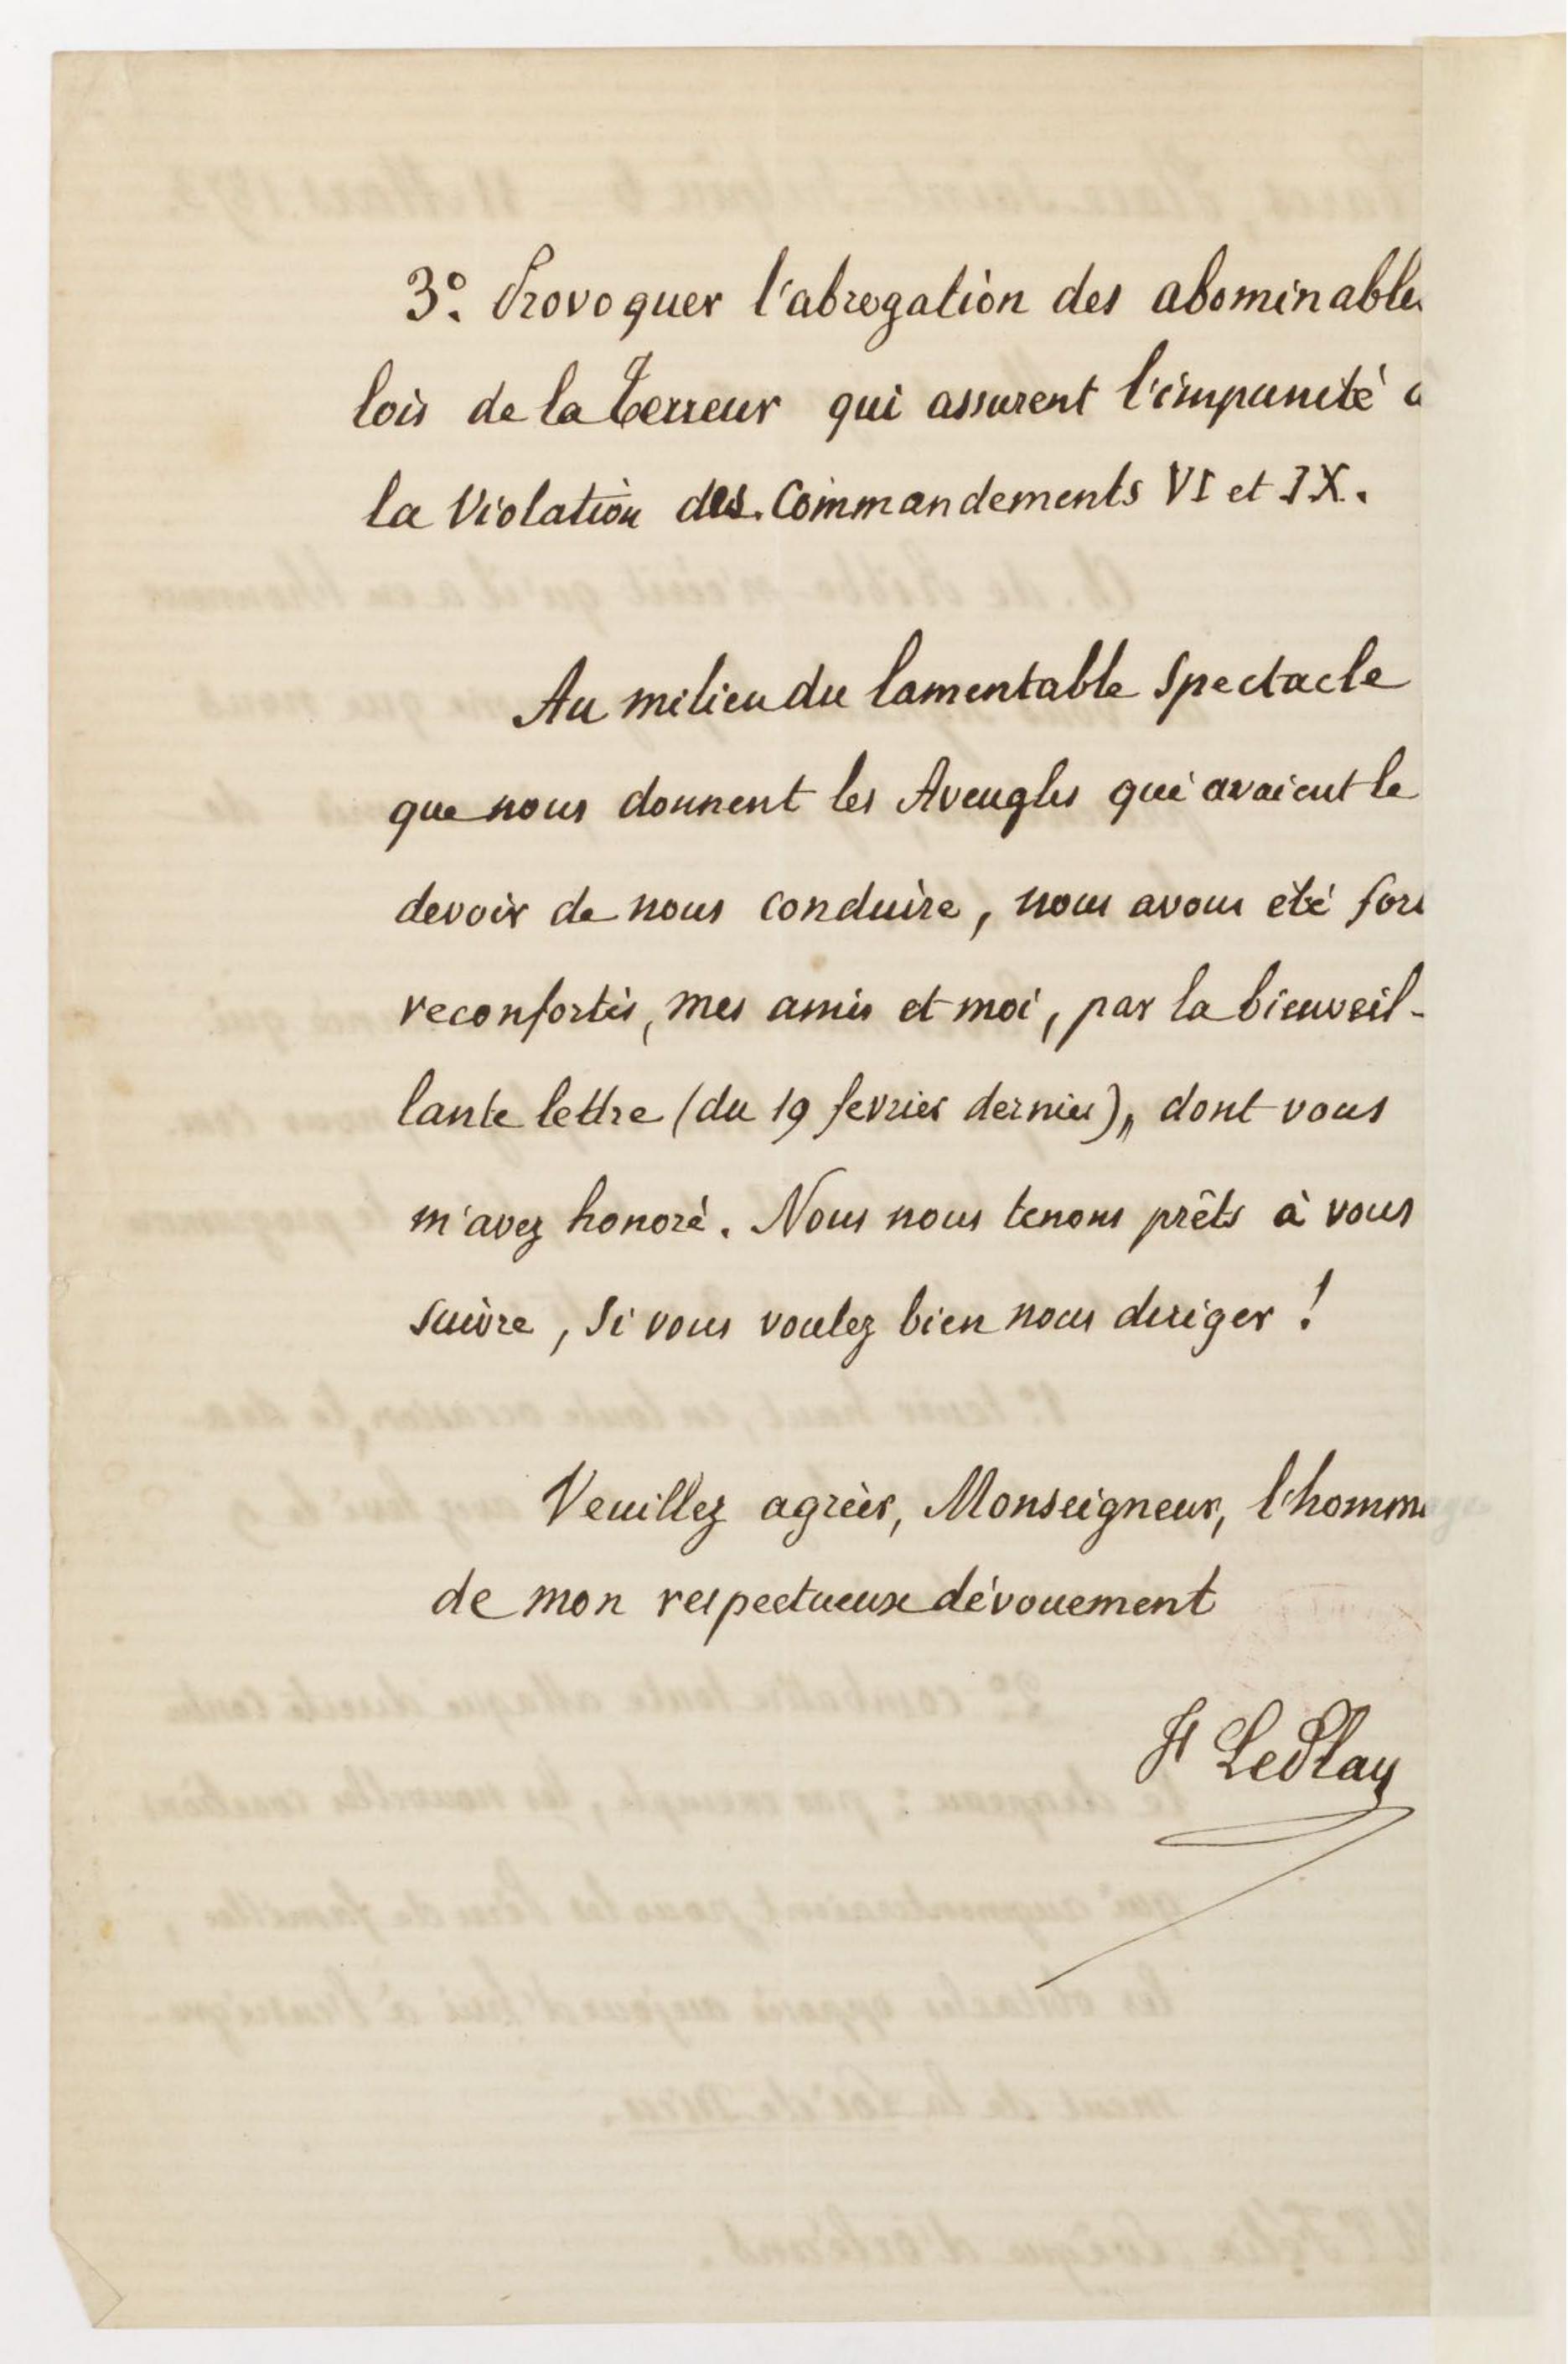 3º. Provoquer l'abrogation des abominables
lois de la Terreur qui assurent l'impunité à
la Violation des Commandements VI et IX.
Au milieu du lamentable spectacle
que nous donnent les Aveugles qui avaient le
devoir de nous conduire, nous avons été fort
reconfortés, mes amis et moi, par la bienveil-
lante lettre (du 19 fevrier dernier), dont vous
m'avez honoré. Nous nous tenons prêts à vous
suivre, si vous voulez bien nous diriger !
Veuillez agréer, Monseigneur, l'hommage
de mon respectueux dévouement
F LePlay